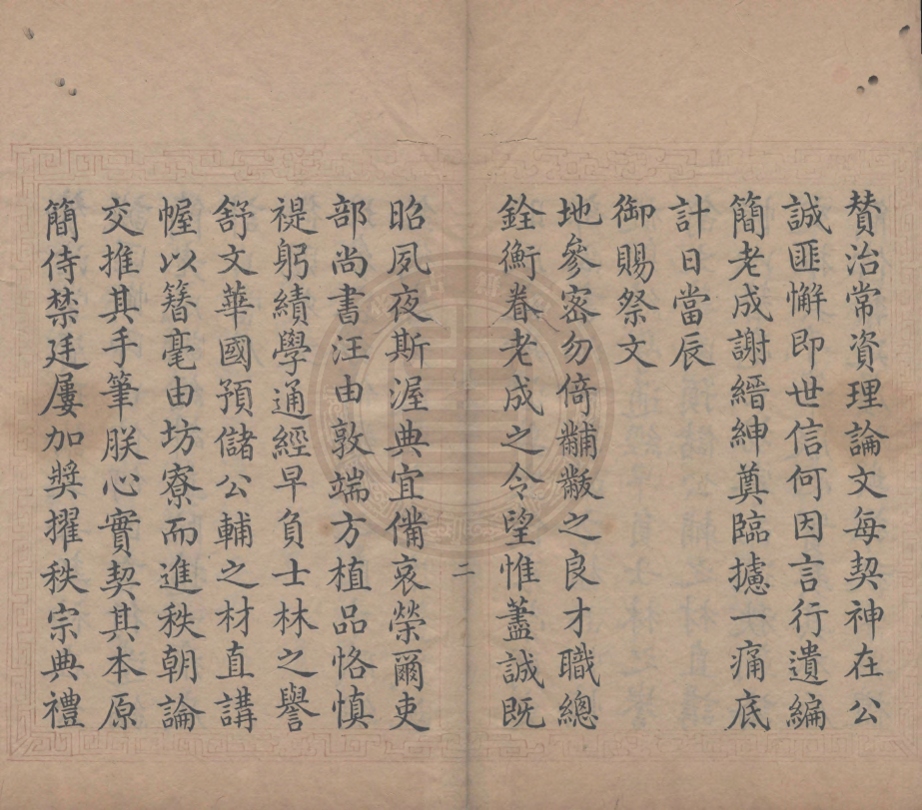 贊治常資理論文每契神在公
誠匪懈即世信何因言行遺編
簡老成謝縉紳奠臨攄一痛底
計日當辰
御賜祭文
地參密勿倚黼黻之良才職總
銓衡眷老成之令望惟藎誠既
二
昭夙夜斯渥典宜備哀榮爾吏
部尚書汪由敦端方植品恪慎
禔躬績學通經早負士林之譽
舒文華國預儲公輔之材直講
幄以簪毫由坊寮而進秩朝論
交推其手筆朕心實契其本原
簡侍禁廷屢加獎擢秩宗典禮